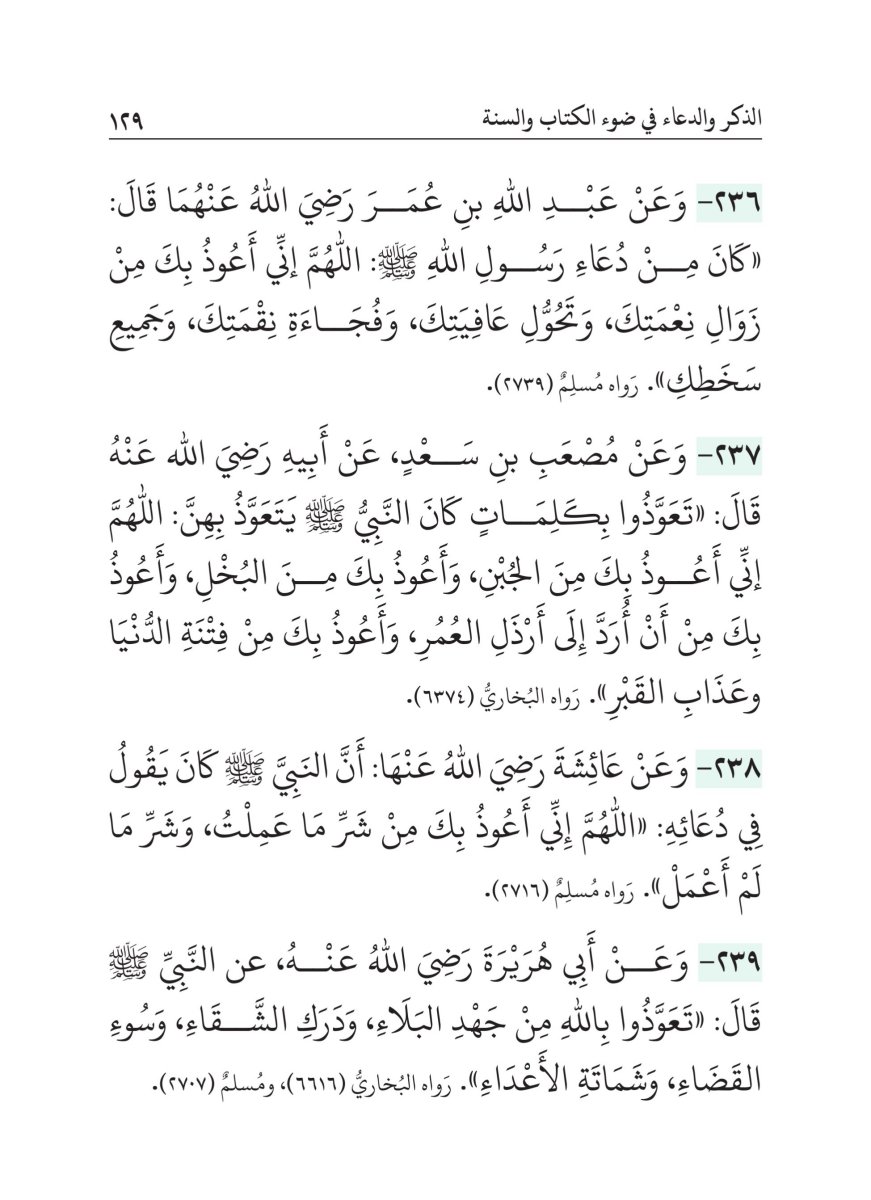 الذكر والدعاء في ضوء الكتاب والسنة ١٢٩
٢٣٦- وَعَنْ عَبْدِ اللهِ بنِ عُمَرَ رَضِيَ اللهُ عَنْهُمَا قَالَ:
«كَانَ مِنْ دُعَاءِ رَسُولِ اللهِ ﷺ: اللَّهُمَّ إنِّي أَعُوذُ بِكَ مِنْ
زَوَالِ نِعْمَتِكَ، وَتَحُوُّلِ عَافِيَتِكَ، وَفُجَاءَةِ نِقْمَتِكَ، وَجَمِيعِ
سَخَطِكِ». رَواه مُسلِمٌ (٢٧٣٩).
٢٣٧- وَعَنْ مُصْعَبِ بنِ سَعْدٍ، عَنْ أَبِيهِ رَضِيَ الله عَنْهُ
قَالَ: «تَعَوَّذُوا بِكَلِمَاتٍ كَانَ النَّبِيُّ ﷺ يَتَعَوَّذُ بِهِنَّ: اللَّهُمَّ
إنِّي أَعُوذُ بِكَ مِنَ الجُبْنِ، وَأَعُوذُ بِكَ مِنَ البُخْلِ، وَأَعُوذُ
بِكَ مِنْ أَنْ أُرَدَّ إِلَى أَرْذَلِ العُمُرِ، وَأَعُوذُ بِكَ مِنْ فِتْنَةِ الدُّنْيَا
وعَذَابِ القَبْرِ». رَواه البُخاريُّ (٦٣٧٤).
٢٣٨- وَعَنْ عَائِشَةَ رَضِيَ اللهُ عَنْهَا: أَنَّ النَبِيَّ ﷺ كَانَ يَقُولُ
فِي دُعَائِهِ: «اللَّهُمَّ إِنِّي أَعُوذُ بِكَ مِنْ شَرِّ مَا عَمِلْتُ، وَشَرِّ مَا
لَمْ أَعْمَلْ». رَواه مُسلِمٌ (٢٧١٦).
٢٣٩- وَعَنْ أَبِي هُرَيْرَةَ رَضِيَ اللهُ عَنْهُ، عن النَّبِيِّ ﷺ
قَالَ: «تَعَوَّذُوا بِاللهِ مِنْ جَهْدِ البَلَاءِ، وَدَرَكِ الشَّقَاءِ، وَسُوءِ
القَضَاءِ، وَشَمَاتَةِ الأَعْدَاءِ». رَواه البُخاريُّ (٦٦١٦)، ومُسلمٌ (٢٧٠٧).